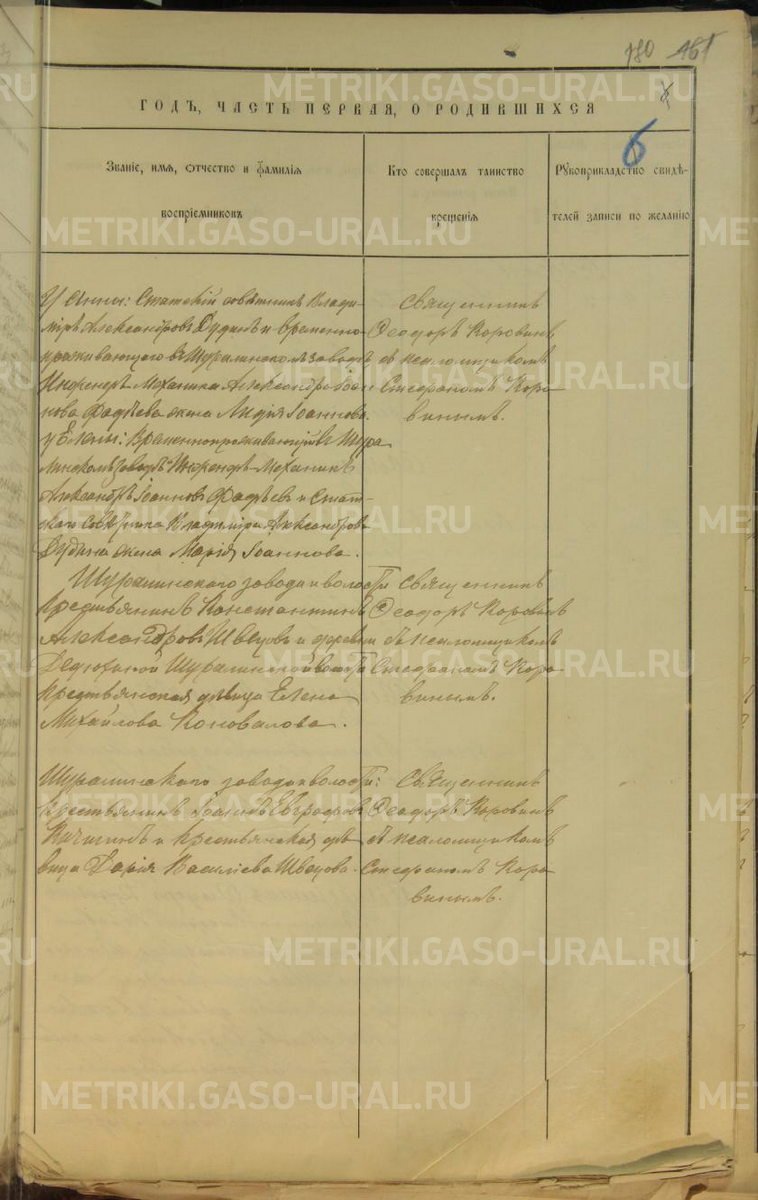 180 161
METRIKI.GASO-URAL.RU METRIKI.GASO-URAL.RU
ГОДЪ, ЧАСТЬ ПЕРВАЯ, О РОДИВШИХСЯ
6
Званіе, имя, отчество и фамилія
воспріемниковъ
Кто совершалъ таинство
крещенія
Рукоприкладство свидѣ-
телей записи по желанію
METRIKI.GASO-URAL.RU
У Анны: Статскій совѣтникъ Влади-
міръ Александровъ Дудинъ и временно
проживающаго въ Шуралинскомъ заводѣ
Инженеръ Механика Александра Іоан-
нова Фадѣева жена Лидія Іоаннова.
у Елены: Временнопроживающій въ Шура
линскомъ заводѣ Инженеръ-Механикъ
Александръ Іоанновъ Фадѣевъ и Стат-
скаго совѣтника Владиміра Александрова
Дудина жена Марія Іоаннова.
Священникъ
Ѳеодоръ Коровинъ
съ псаломщикомъ
Стефаномъ Коро
винымъ.
METRIKI.GASO-URAL.RU
METRIKI.GASO-URAL.RU
Шуралинскаго завода и волости
крестьянинъ Константинъ
Александровъ Швецовъ и деревни
Шуралинской волости
крестьянская дѣвица Елена
Михайлова Коновалова.
Священникъ
Ѳеодоръ Коровинъ
съ псаломщикомъ
Стефаномъ Коро
винымъ.
METRIKI.GASO-URAL.RU
Шуралинскаго завода и волости:
крестьянинъ Іоаннъ
и крестьянская дѣ
вица Дарія Василіева Швецова.
Священникъ
Ѳеодоръ Коровинъ
съ псаломщикомъ
Стефаномъ Коро
винымъ.
METRIKI.GASO-URAL.RU
METRIKI.GASO-URAL.RU
METRIKI.GASO-URAL.RU